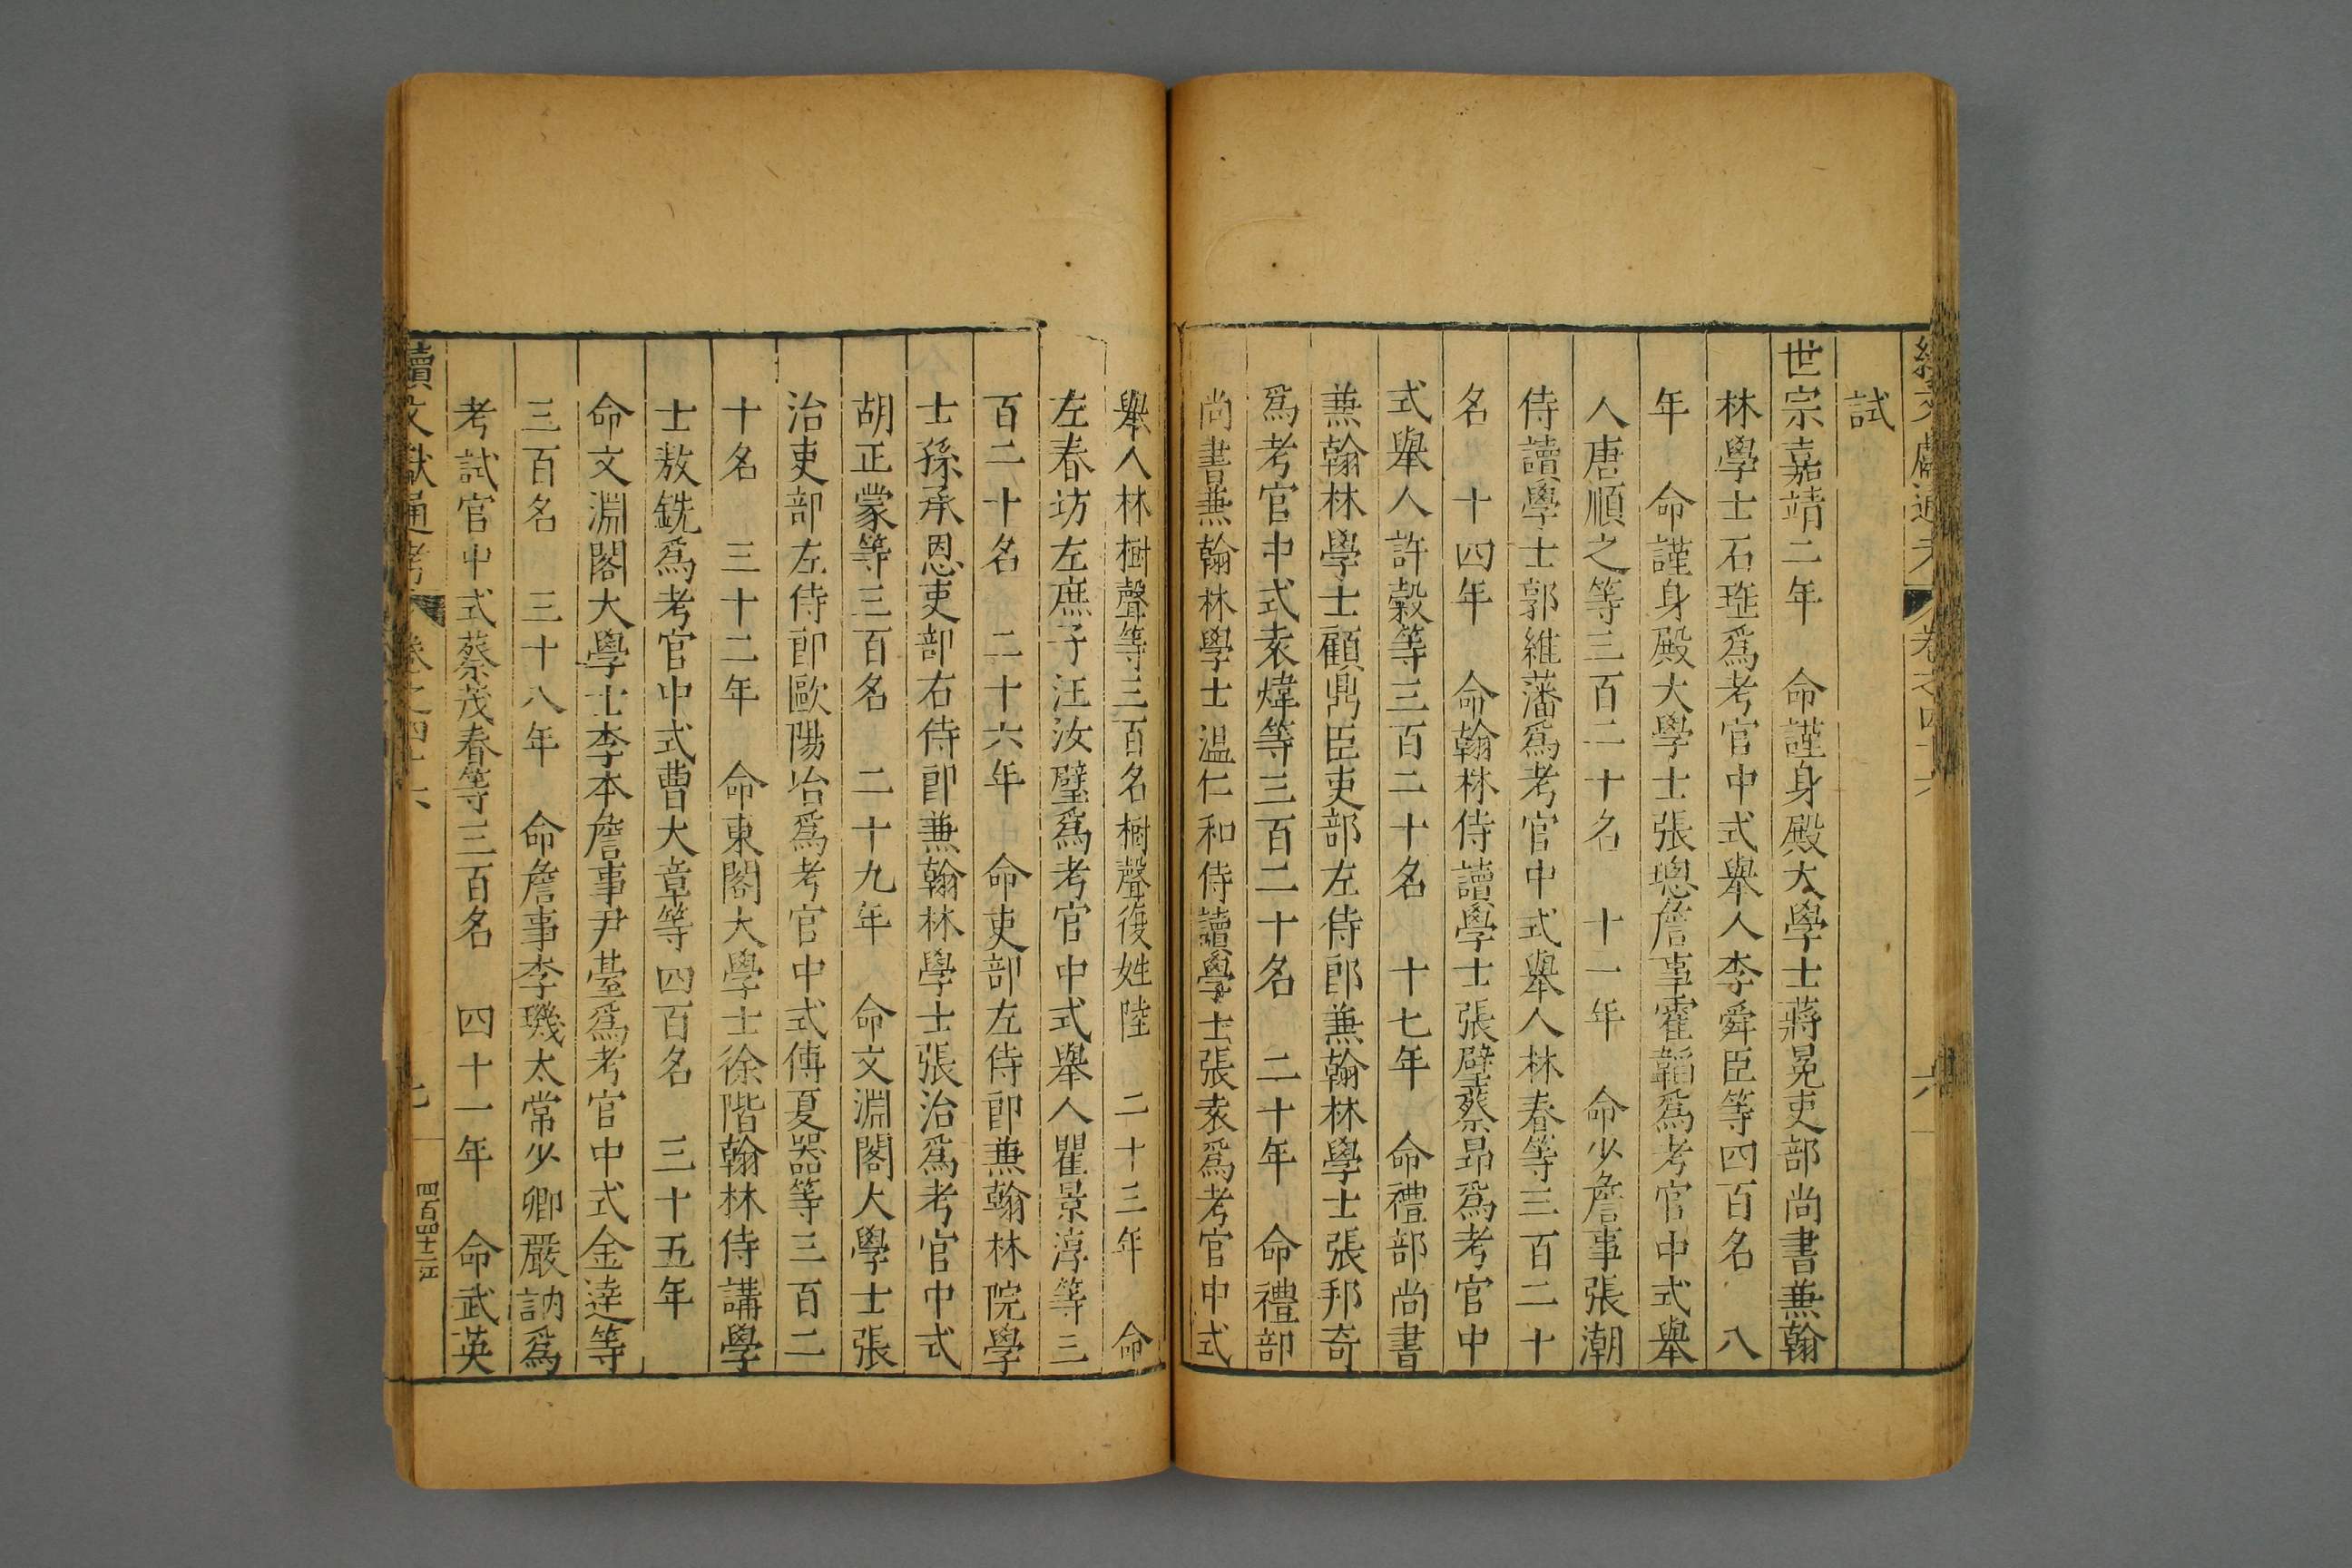 試
世宗嘉靖二年　命謹身殿大學士蔣冕吏部尚書兼翰
林學士石珤爲考官中式舉人李舜臣等四百名　八
年　命謹身殿大學士張璁詹事霍韜爲考官中式舉
人唐順之等三百二十名　十一年　命少詹事張潮
侍讀學士郭維藩爲考官中式舉人林春等三百二十
名　十四年　命翰林侍讀學士張璧蔡昂爲考官中
式舉人許穀等三百二十名　十七年　命禮部尚書
兼翰林學士顧鼎臣吏部左侍郎兼翰林學士張邦奇
爲考官中式袁煒等三百二十名　二十年　命禮部
尚書兼翰林學士温仁和侍讀學士張袞爲考官中式
舉人林樹聲等三百名樹聲復姓陸　二十三年　命
左春坊左庶子江汝璧爲考官中式舉人瞿景淳等三
百二十名　二十六年　命吏部左侍郎兼翰林院學
士孫承恩吏部右侍郎兼翰林學士張治爲考官中式
胡正蒙等三百名　二十九年　命文淵閣大學士張
治吏部左侍郎歐陽治爲考官中式傅夏器等三百二
十名　三十二年　命東閣大學士徐階翰林侍講學
士敖銑爲考官中式曹大章等四百名　三十五年
命文淵閣大學士李本詹事尹臺爲考官中式金達等
三百名　三十八年　命詹事李璣太常少卿嚴訥爲
考試官中式蔡茂春等三百名　四十一年　命武英
續文獻通考　卷之四十六　七　四百四十二江